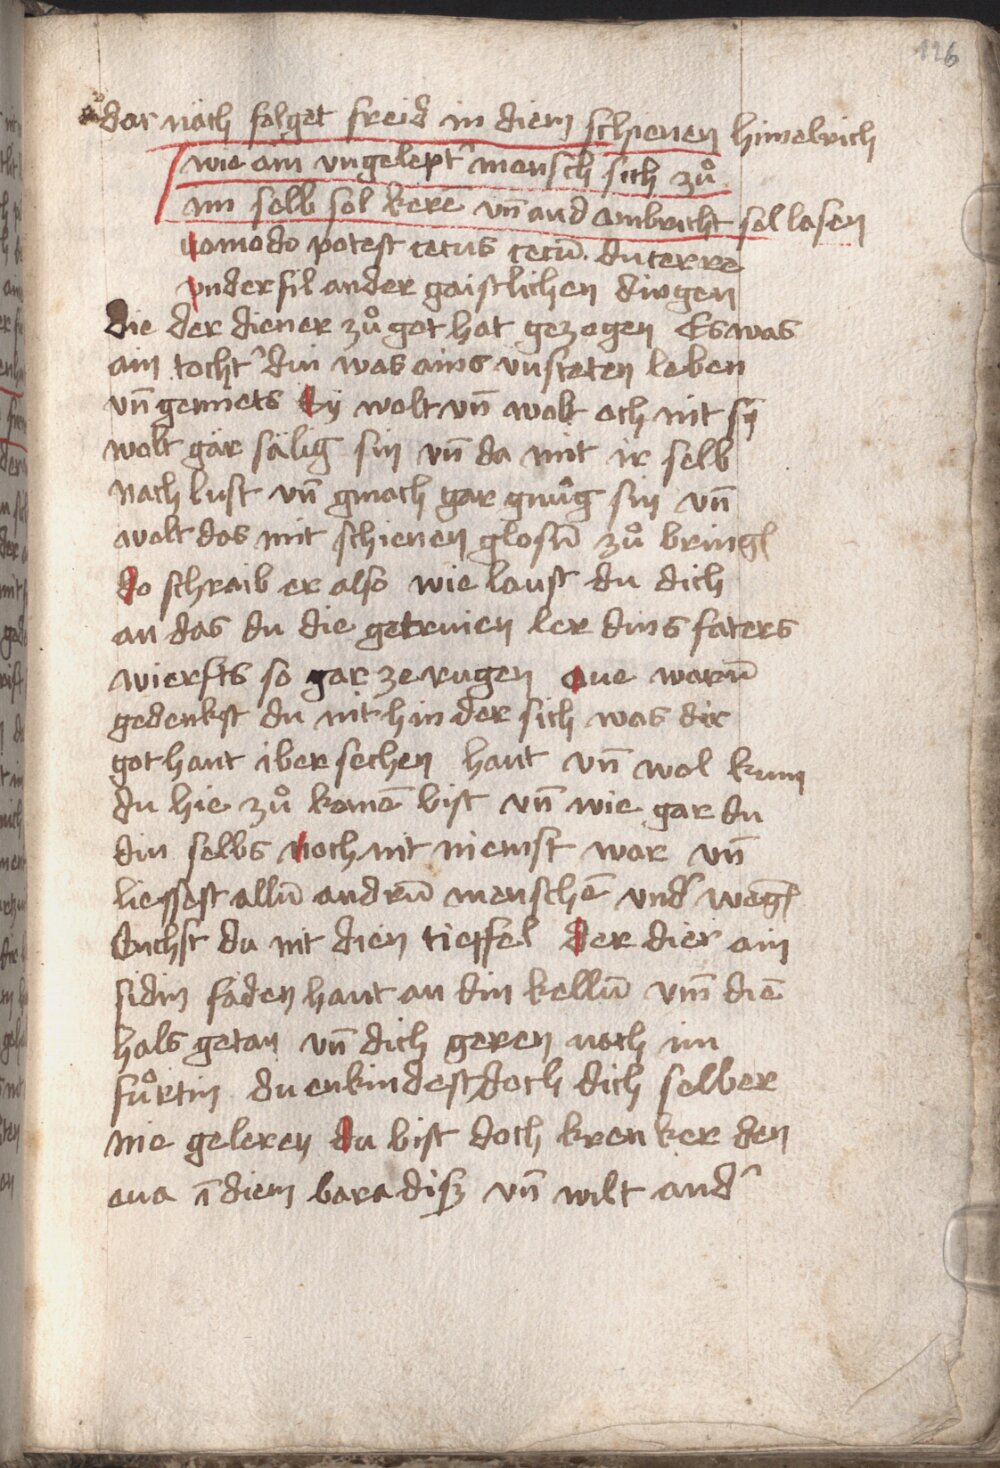 126
dar nach folget freid in diem schienen himelrich
wie ain vngelepter mensch sich zů
im selb sol kerē vn̄ and ombricht sol lasen
uomodo potest cecus cecū ducerre
vnder fil ander gaistlichen dingen
die der diener zů got hat gezogen Es was
ain tocht' din was ains vnsteten leben
vn̄ gemiets Sy wolt vn̄ wolt och nit sy
wolt gar sälig sin vn̄ da mit ir selb
nach lust vn̄ gmach gar gnůg sin vn̄
wolt das mit schienen glosū zů bring
do schraib er also wie laust du dich
an das du die getruien ler dins faters
wierfts so gar ze rugen Aue warū
gedenkst du nit hin der sich was dir
got haut iber sechen haut vn̄ wol kum
du hie zů komē bist vn̄ wie gar du
din selbs noch nit niemst war vn̄
liessest allū andrū menschē vnd' weg
Suchst du nit dien tieffel Der dier ain
sidin faden haut an din kellū vm̄ diē
hals getan vn̄ dich geren noch im
fůrtin du enkindest doch dich selber
nie geleren Du bist doch krenker den
aua ī diem baradisz vn̄ wilt and'